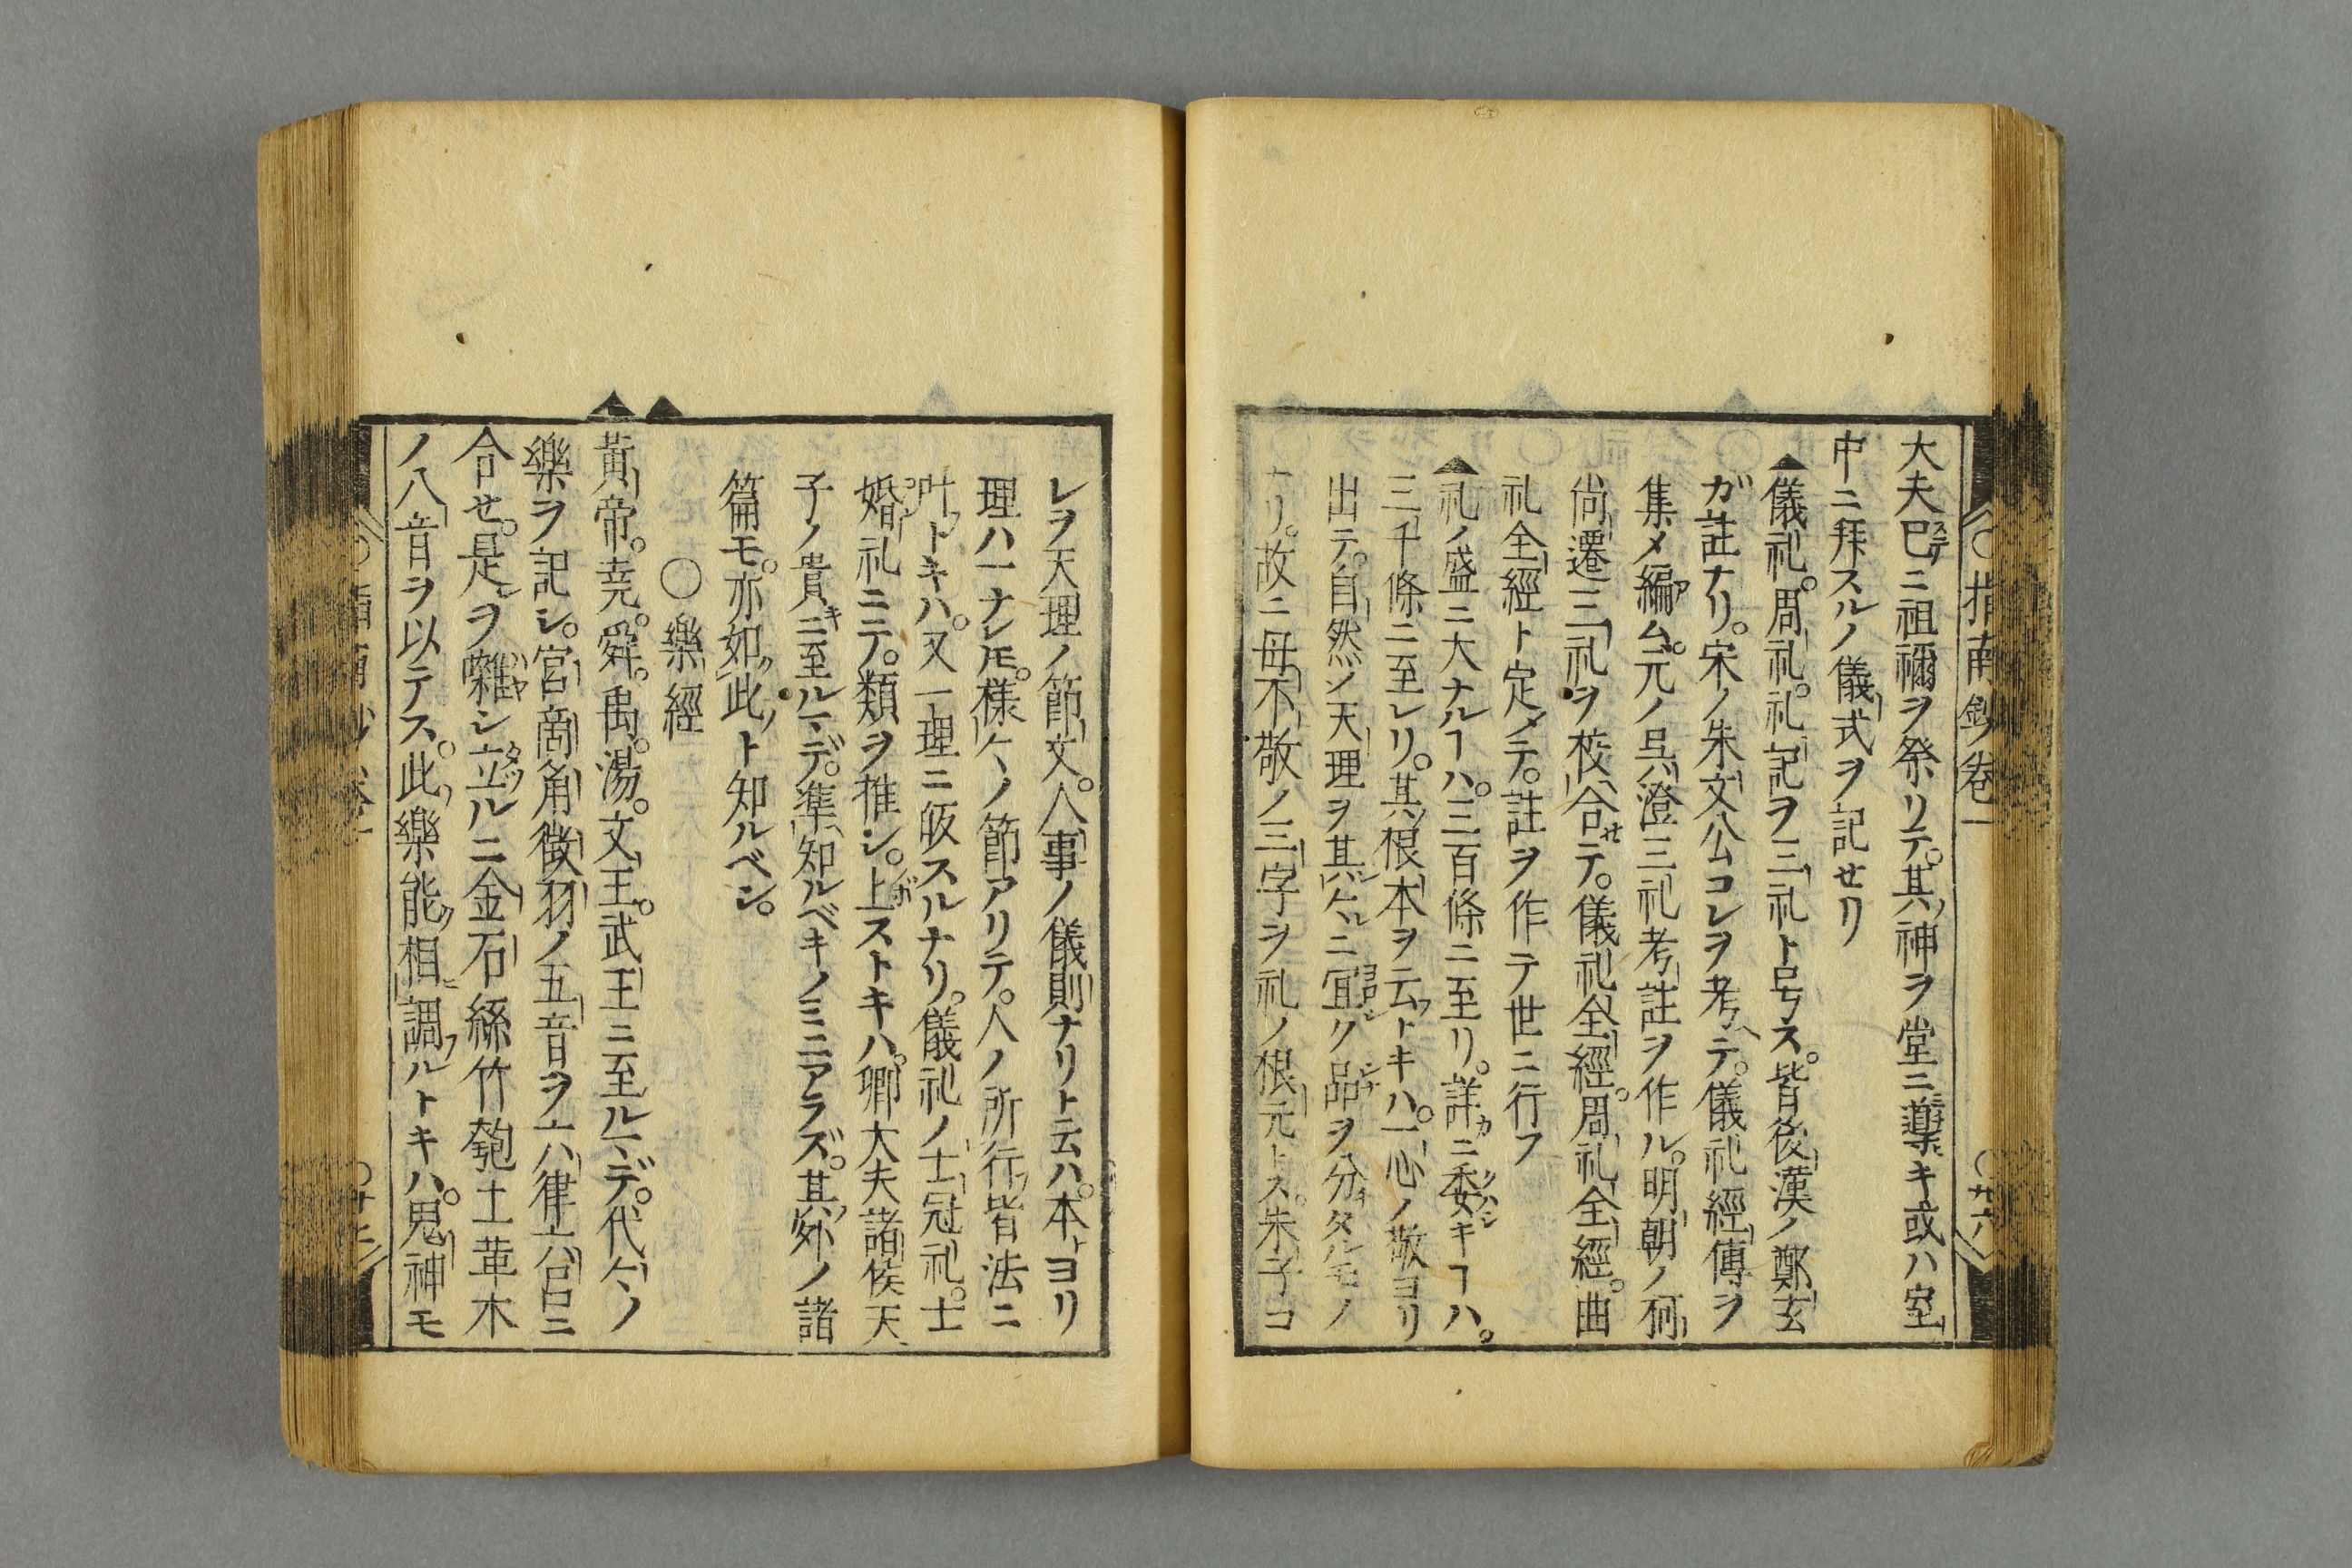 ○指南鈔卷一
○廿六
大夫巳ニ祖禰ヲ祭リテ。其神ヲ堂ニ薬キ或ハ室
中ニ拜スルノ儀式ヲ記せリ
儀礼。周礼。礼記ヲ三礼ト号ス。皆後漢ノ鄭玄
ガ註ナリ。宋ノ朱文公コレヲ考ヘテ。儀礼經傳ヲ
集メ編ム。元ノ呉澄三礼考註ヲ作ル。明朝ノ柯
尚遷三礼ヲ校合せテ。儀礼全經。周礼全經。曲
礼全經ト定メテ。註ヲ作テ世ニ行フ
礼ノ盛ニ大ナルヿハ。三百條ニ至リ。詳カニ委キヿハ。
三千條ニ至レリ。其根本ヲ云フトキハ。一心ノ敬ヨリ
出テ。自然ノ天理ヲ其レ〱ニ宜ク品ヲ分イタルモノ
ナリ。故ニ毋不敬ノ三字ヲ礼ノ根元トス。朱子コ
レヲ天理ノ節文。人事ノ儀則ナリト云ハ。本ヨリ
理ハ一ナレ𪜈。様〱ノ節アリテ。人ノ所行皆法ニ
叶フトキハ。又一理ニ皈スルナリ。儀礼ノ士冠礼。士
婚礼ニテ。類ヲ推シ。上ストキハ。卿大夫諸侯天
子ノ貴キニ至ルマデ。準知ルベキノミニアラズ。其外ノ諸
篇モ。亦如此ノト知ルベシ。
○樂經
黃帝。堯。舜。禹。湯。文王。武王ニ至ルマデ。代〱ノ
樂ヲ記シ。宮商角徵羽ノ五音ヲ六律六呂ニ
合せ。是ヲ囃シ立ルニ金石絲竹匏土革木
ノ八音ヲ以テス。此樂能相調フルトキハ。鬼神モ